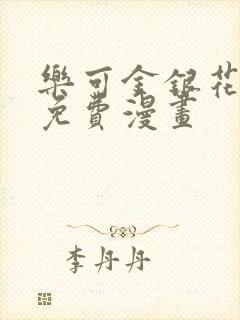 樂可金銀花
免費漫畫
李丹丹